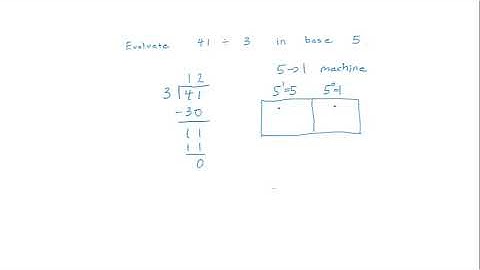 Evaluate 41 ÷ 3 in base 5
5→1 machine
12
5¹=5 5⁰=1
3 41
-30
11
11
0